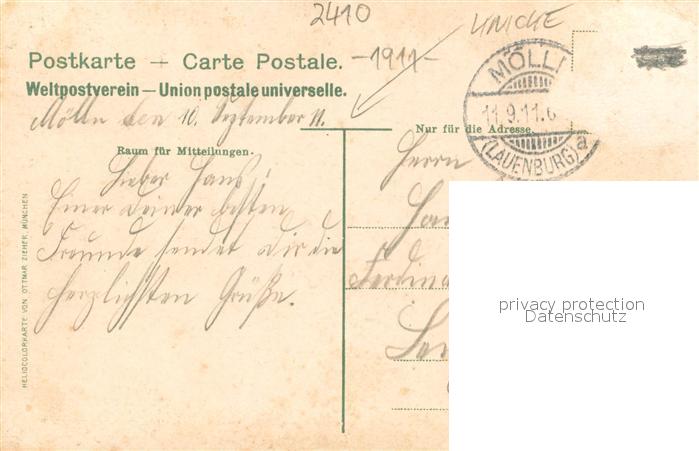 2410
UNICHE
Postkarte — Carte Postale.
-1911-
Weltpostverein — Union postale universelle.
Mölln den 10. September 11.
MÖLLN
11.9.11.6
(LAUENBURG) a
Nur für die Adresse.
Raum für Mitteilungen.
Herrn
Lieber Hans!
Einer Deiner besten
Freunde sendet Dir die
herzlichsten Grüße.
Ferdina
privacy protection
Datenschutz
HELIOCOLORKARTE VON OTTMAR ZIEHER, MÜNCHEN